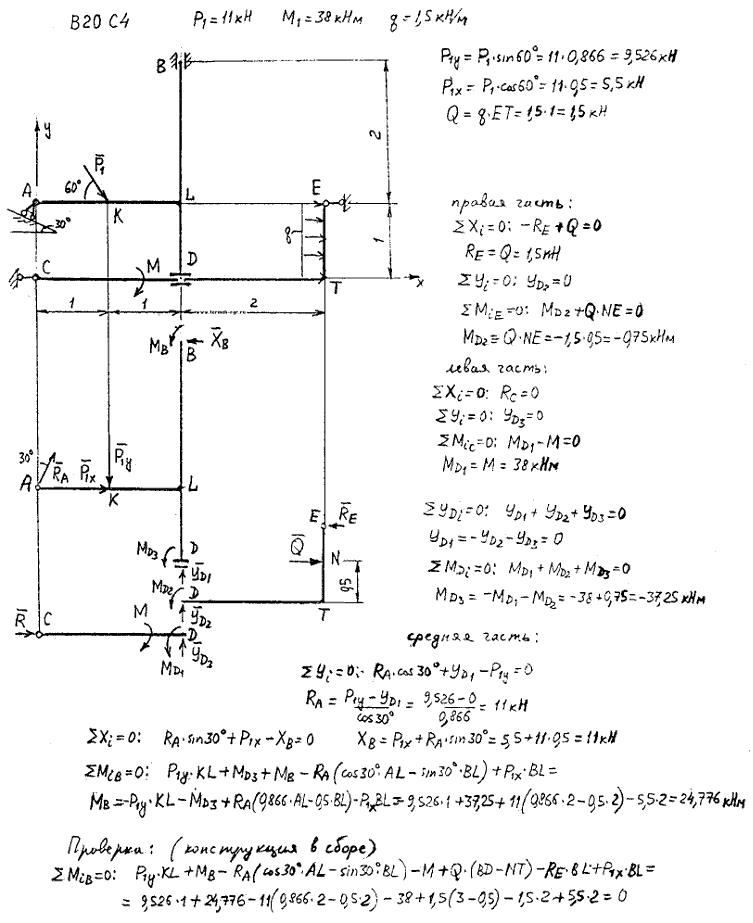 B20 C4 P₁=11кН M₁=38кНм q=1,5кН/м
P₁y=P₁·sin60°=11·0,866=9,526кН
P₁x=P₁·cos60°=11·0,5=5,5кН
Q=q·ET=1,5·1=1,5кН
B
2
y
P̄₁
A
60°
K
L
E
30°
q
1
C
M
D
T
x
1
1
2
правая часть:
ΣXi=0: -RE+Q=0
RE=Q=1,5кН
ΣYi=0: YD₂=0
ΣMiE=0: MD₂+Q·NE=0
MD₂=Q·NE=-1,5·0,5=-0,75кНм
левая часть:
ΣXi=0: RC=0
ΣYi=0: YD₃=0
ΣMiC=0: MD₁-M=0
MD₁=M=38кНм
ΣYDi=0: YD₁+YD₂+YD₃=0
YD₁=-YD₂-YD₃=0
ΣMDi=0: MD₁+MD₂+MD₃=0
MD₃=-MD₁-MD₂=-38+0,75=-37,25кНм
MB
X̄B
B
30°
R̄A
P̄₁x
P̄₁y
A
K
L
E
R̄E
MD₃
D
ȲD₁
Q̄
N
0,5
MD₂
D
ȲD₂
T
R̄
C
M
D
MD₁
ȲD₃
средняя часть:
ΣYi=0: RA·cos30°+YD₁-P₁y=0
RA=(P₁y-YD₁)/cos30°=(9,526-0)/0,866=11кН
ΣXi=0: RA·sin30°+P₁x-XB=0 XB=P₁x+RA·sin30°=5,5+11·0,5=11кН
ΣMiB=0: P₁y·KL+MD₃+MB-RA(cos30°·AL-sin30°·BL)+P₁x·BL=
MB=-P₁y·KL-MD₃+RA(0,866·AL-0,5·BL)-P₁xBL=-9,526·1+37,25+11(0,866·2-0,5·2)-5,5·2=24,776кНм
Проверка: (конструкция в сборе)
ΣMiB=0: P₁y·KL+MB-RA(cos30°·AL-sin30°·BL)-M+Q·(BD-NT)-RE·BL+P₁x·BL=
=9,526·1+24,776-11(0,866·2-0,5·2)-38+1,5(3-0,5)-1,5·2+5,5·2=0